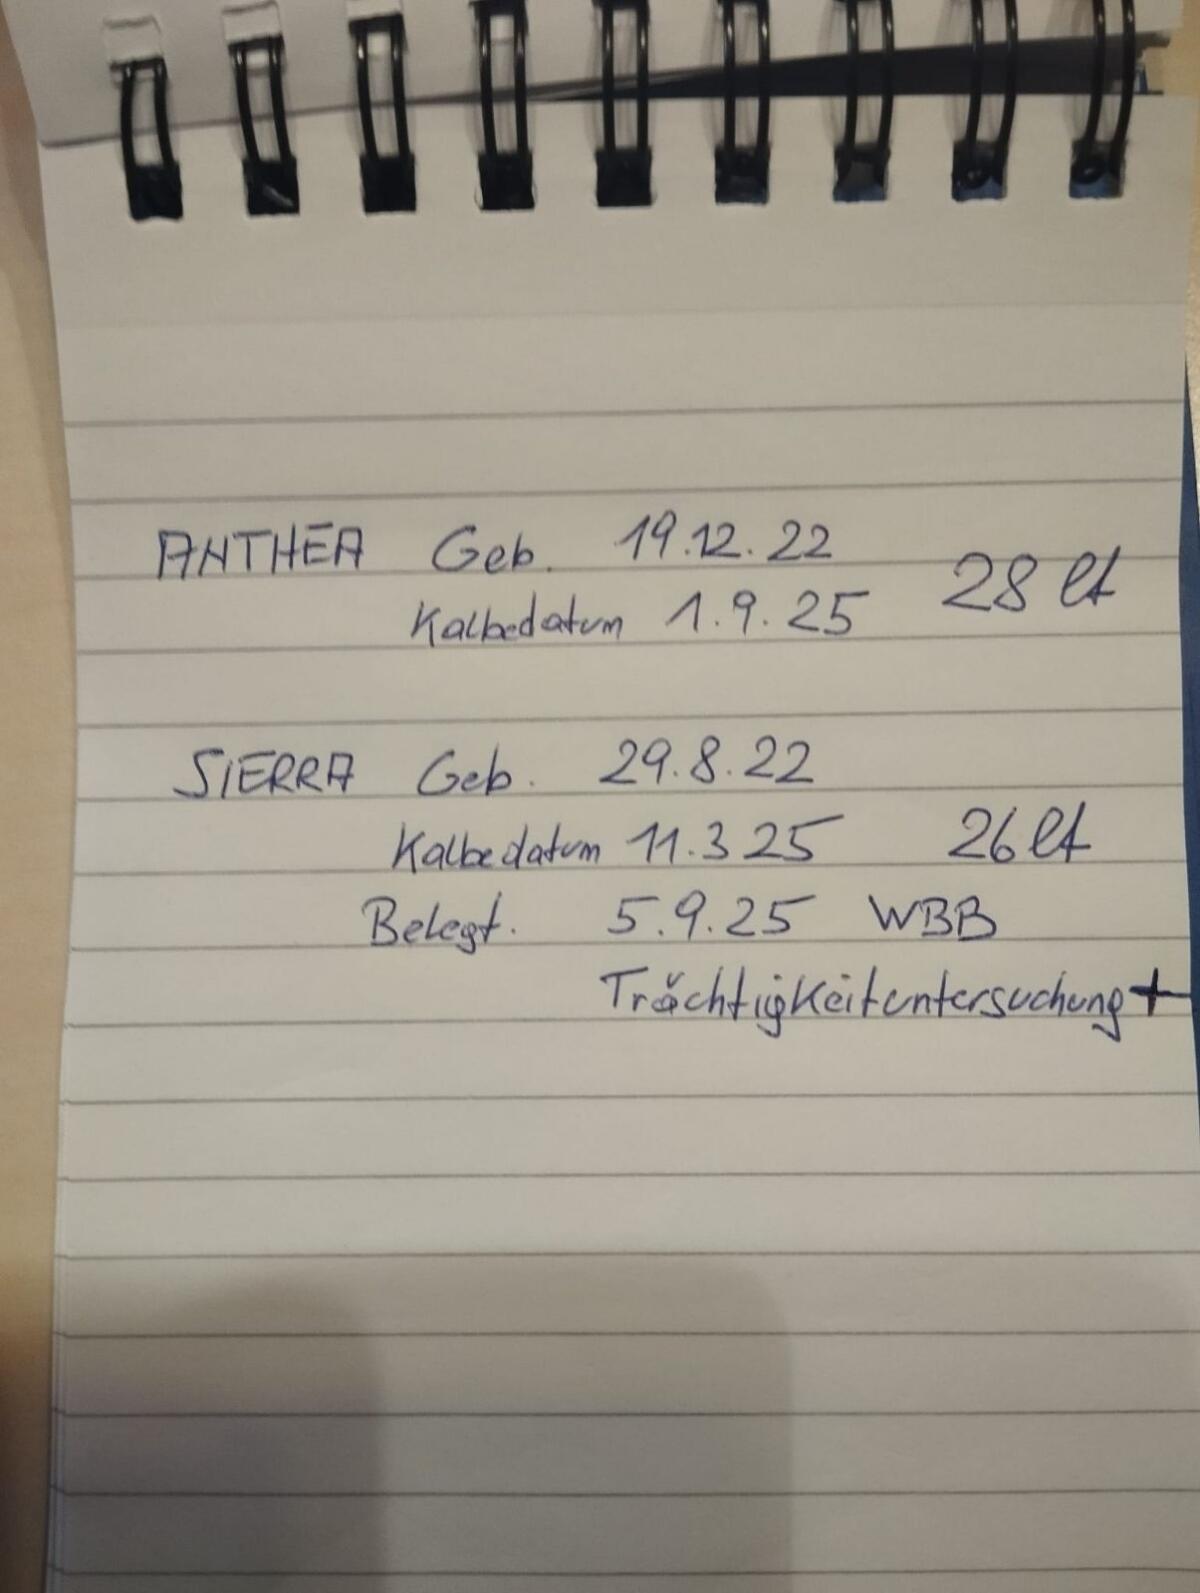 ANTHEA Geb. 19.12.22
Kalbedatum 1.9.25 28 lt
SIERRA Geb. 29.8.22
Kalbedatum 11.3 25 26 lt
Belegt. 5.9.25 WBB
Trächtigkeituntersuchung +